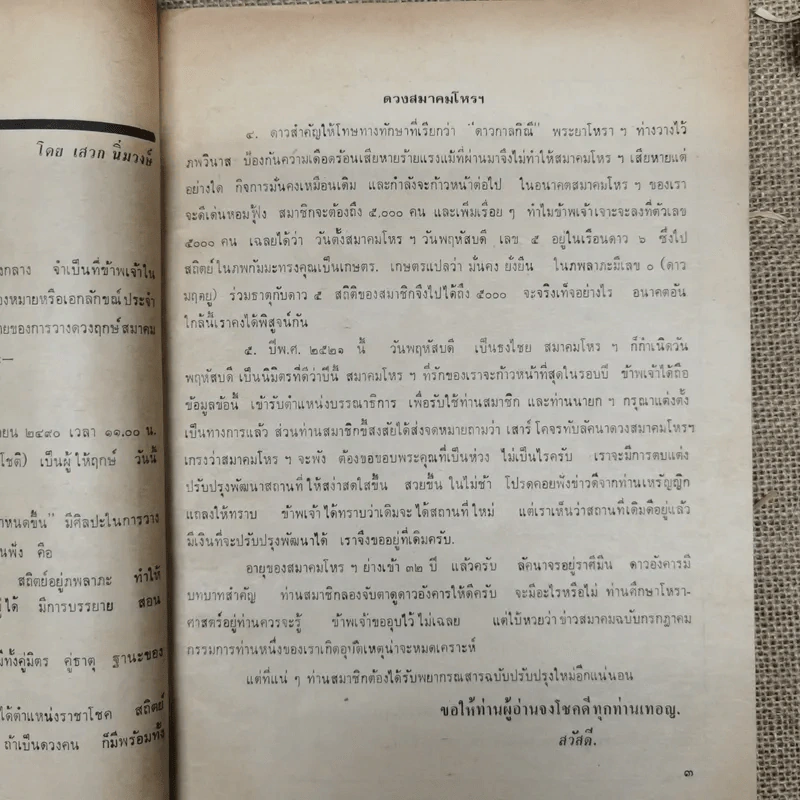 โดย เสวก นิ่มวงษ์
กลาง จำเป็นที่ข้าพเจ้าใน
องหมายหรือเอกลักษณ์ประจำ
ายของการวางดวงฤกษ์สมาคม
:—
ยน ๒๔๙๐ เวลา ๑๑.๐๐ น.
โชติ) เป็นผู้ให้ฤกษ์ วันนี้
าหนดขึ้น" มีศิลปะในการวาง
นพัง คือ
สถิตย์อยู่ภพลาภะ ทำให้
ได้ มีการบรรยาย สอน
มีทั้งคู่มิตร คู่ธาตุ ฐานะของ
ได้ตำแหน่งราชาโชค สถิตย์
ถ้าเป็นดวงคน ก็มีพร้อมทั้ง
ดวงสมาคมโหรฯ
๔. ดาวสำคัญให้โทษทางทักษาที่เรียกว่า "ดาวกาลกิณี" พระยาโหรา ฯ ท่างวางไว้
ภพวินาส ป้องกันความเดือดร้อนเสียหายร้ายแรงแม้ที่ผ่านมาจึงไม่ทำให้สมาคมโหร ฯ เสียหายแต่
อย่างใด กิจการมั่นคงเหมือนเดิม และกำลังจะก้าวหน้าต่อไป ในอนาคตสมาคมโหร ฯ ของเรา
จะดีเด่นหอมฟุ้ง สมาชิกจะต้องถึง ๕.๐๐๐ คน และเพิ่มเรื่อย ๆ ทำไมข้าพเจ้าเจาะจะลงที่ตัวเลข
๕๐๐๐ คน เฉลยได้ว่า วันตั้งสมาคมโหร ฯ วันพฤหัสบดี เลข ๕ อยู่ในเรือนดาว ๖ ซึ่งไป
สถิตย์ในภพกัมมะทรงคุณเป็นเกษตร. เกษตรแปลว่า มั่นคง ยั่งยืน ในภพลาภะมีเลข ๐ (ดาว
มฤตยู) ร่วมธาตุกับดาว ๕ สถิติของสมาชิกจึงไปได้ถึง ๕๐๐๐ จะจริงเท็จอย่างไร อนาคตอัน
ใกล้นี้เราคงได้พิสูจน์กัน
๕. ปีพ.ศ. ๒๕๒๑ นี้ วันพฤหัสบดี เป็นธงไชย สมาคมโหร ฯ ก็กำเนิดวัน
พฤหัสบดี เป็นนิมิตรที่ดีว่าปีนี้ สมาคมโหร ฯ ที่รักของเราจะก้าวหน้าที่สุดในรอบปี ข้าพเจ้าได้ถือ
ข้อมูลข้อนี้ เข้ารับตำแหน่งบรรณาธิการ เพื่อรับใช้ท่านสมาชิก และท่านนายก ฯ กรุณาแต่งตั้ง
เป็นทางการแล้ว ส่วนท่านสมาชิกขี้สงสัยได้ส่งจดหมายถามว่า เสาร์ โคจรทับลัคนาดวงสมาคมโหรฯ
เกรงว่าสมาคมโหร ฯ จะพัง ต้องขอขอบพระคุณที่เป็นห่วง ไม่เป็นไรครับ เราจะมีการตบแต่ง
ปรับปรุงพัฒนาสถานที่ ให้สง่าสดใสขึ้น สวยขึ้น ในไม่ช้า โปรดคอยฟังข่าวดีจากท่านเหรัญญิก
แถลงให้ทราบ ข้าพเจ้าได้ทราบว่าเดิมจะได้สถานที่ใหม่ แต่เราเห็นว่าสถานที่เดิมดีอยู่แล้ว
มีเงินที่จะปรับปรุงพัฒนาได้ เราจึงขออยู่ที่เดิมครับ.
อายุของสมาคมโหร ฯ ย่างเข้า ๓๒ ปี แล้วครับ ลัคนาจรอยู่ราศีมีน ดาวอังคารมี
บทบาทสำคัญ ท่านสมาชิกลองจับตาดูดาวอังคารให้ดีครับ จะมีอะไรหรือไม่ ท่านศึกษาโหรา-
ศาสตร์อยู่ท่านควรจะรู้ ข้าพเจ้าขออุบไว้ไม่เฉลย แต่ใบ้หวยว่า ข่าวสมาคมฉบับกรกฎาคม
กรรมการท่านหนึ่งของเราเกิดอุบัติเหตุน่าจะหมดเคราะห์
แต่ที่แน่ ๆ ท่านสมาชิกต้องได้รับพยากรณสารฉบับปรับปรุงใหม่อีกแน่นอน
ขอให้ท่านผู้อ่านจงโชคดีทุกท่านเทอญ.
สวัสดี.
๓